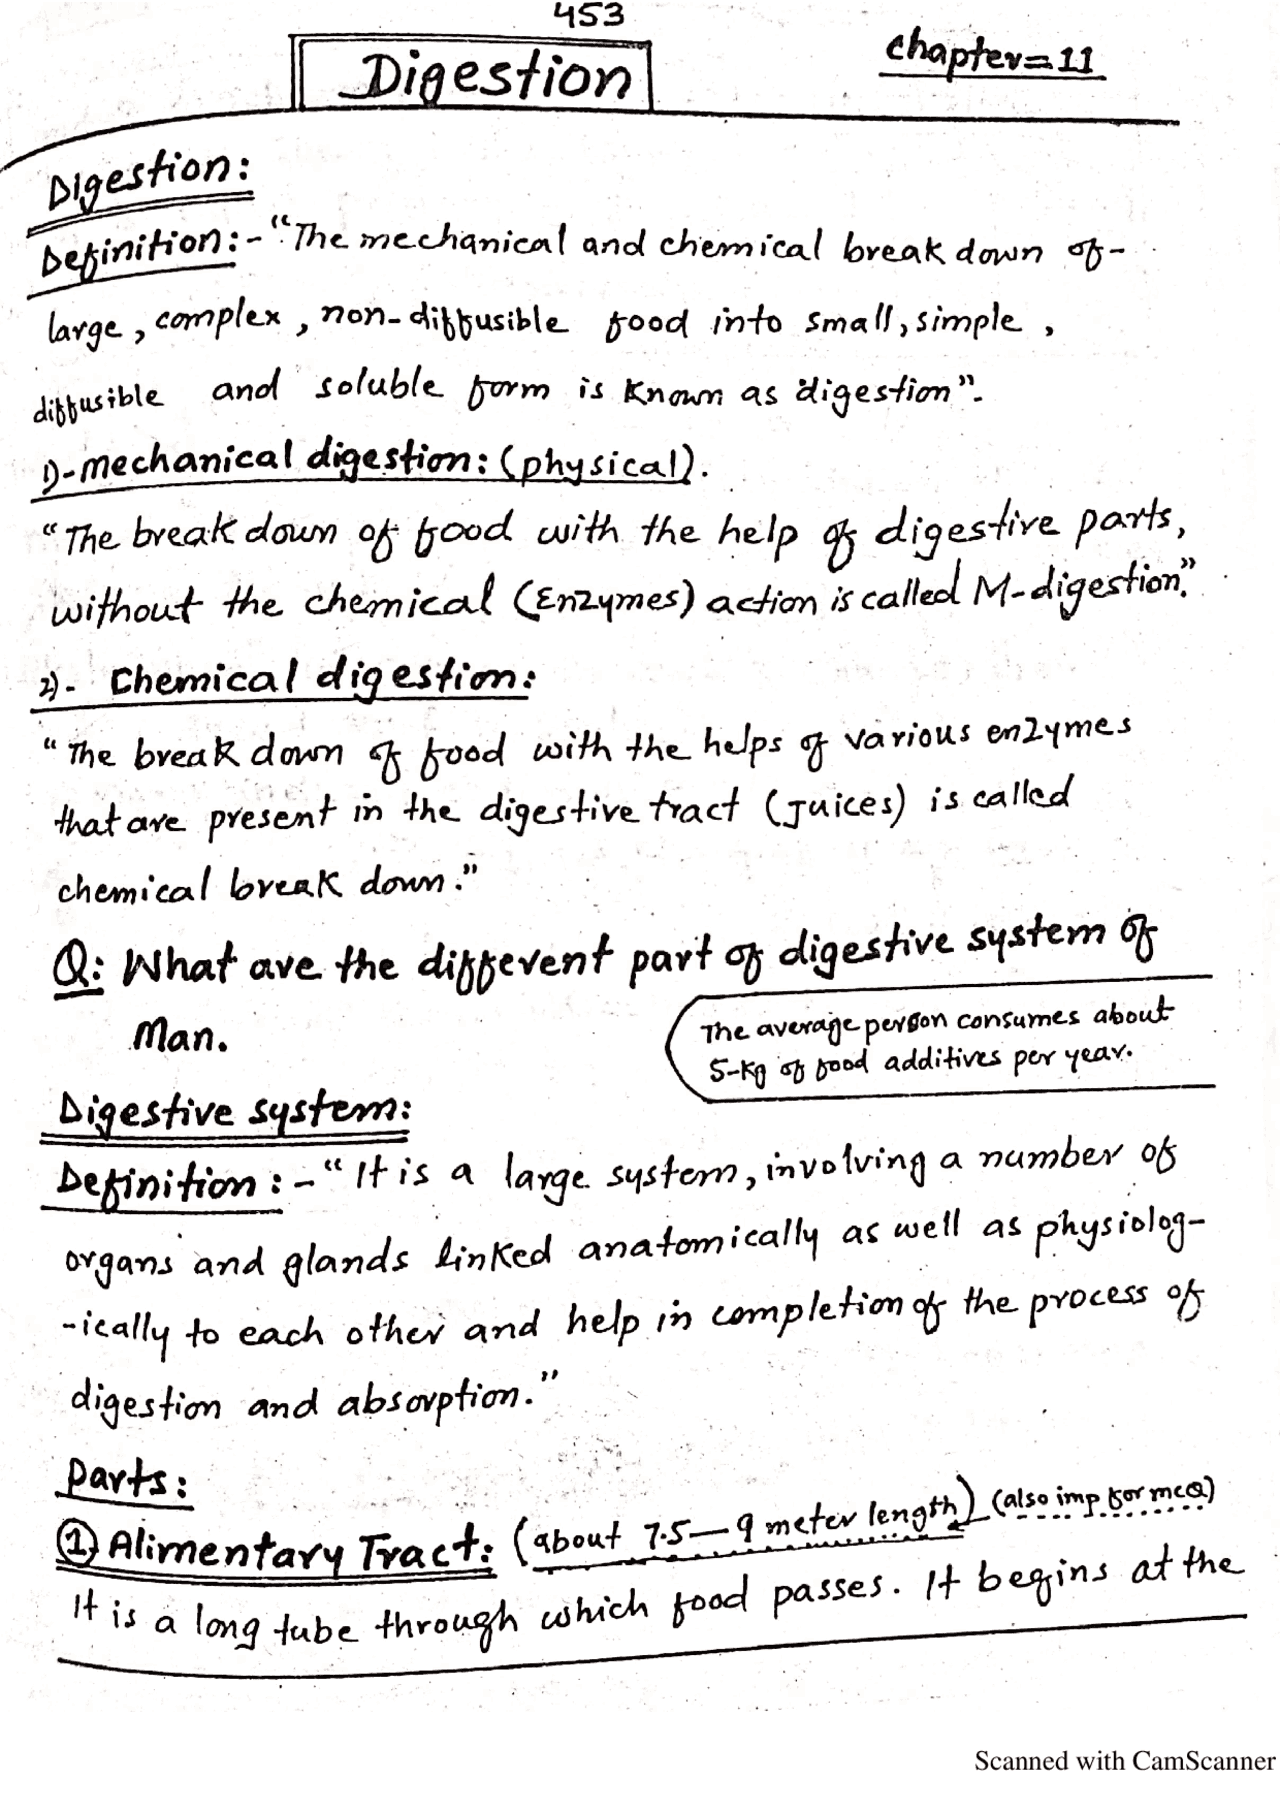 453
Digestion
chapter=11
Digestion:
Definition:- "The mechanical and chemical break down of-
large, complex, non-diffusible food into small, simple,
diffusible and soluble form is known as digestion".
1)- mechanical digestion: (physical).
"The break down of food with the help of digestive parts,
without the chemical (Enzymes) action is called M-digestion."
2)- Chemical digestion:
"The break down of food with the helps of various enzymes
that are present in the digestive tract (Juices) is called
chemical break down."
Q: What are the different part of digestive system of
Man.
The average person consumes about
5-Kg of food additives per year.
Digestive system:
Definition:- "It is a large system, involving a number of
organs and glands linked anatomically as well as physiolog-
-ically to each other and help in completion of the process of
digestion and absorption."
Parts:
① Alimentary Tract: (about 7.5—9 meter length) (also imp for mcQ)
It is a long tube through which food passes. It begins at the
Scanned with CamScanner